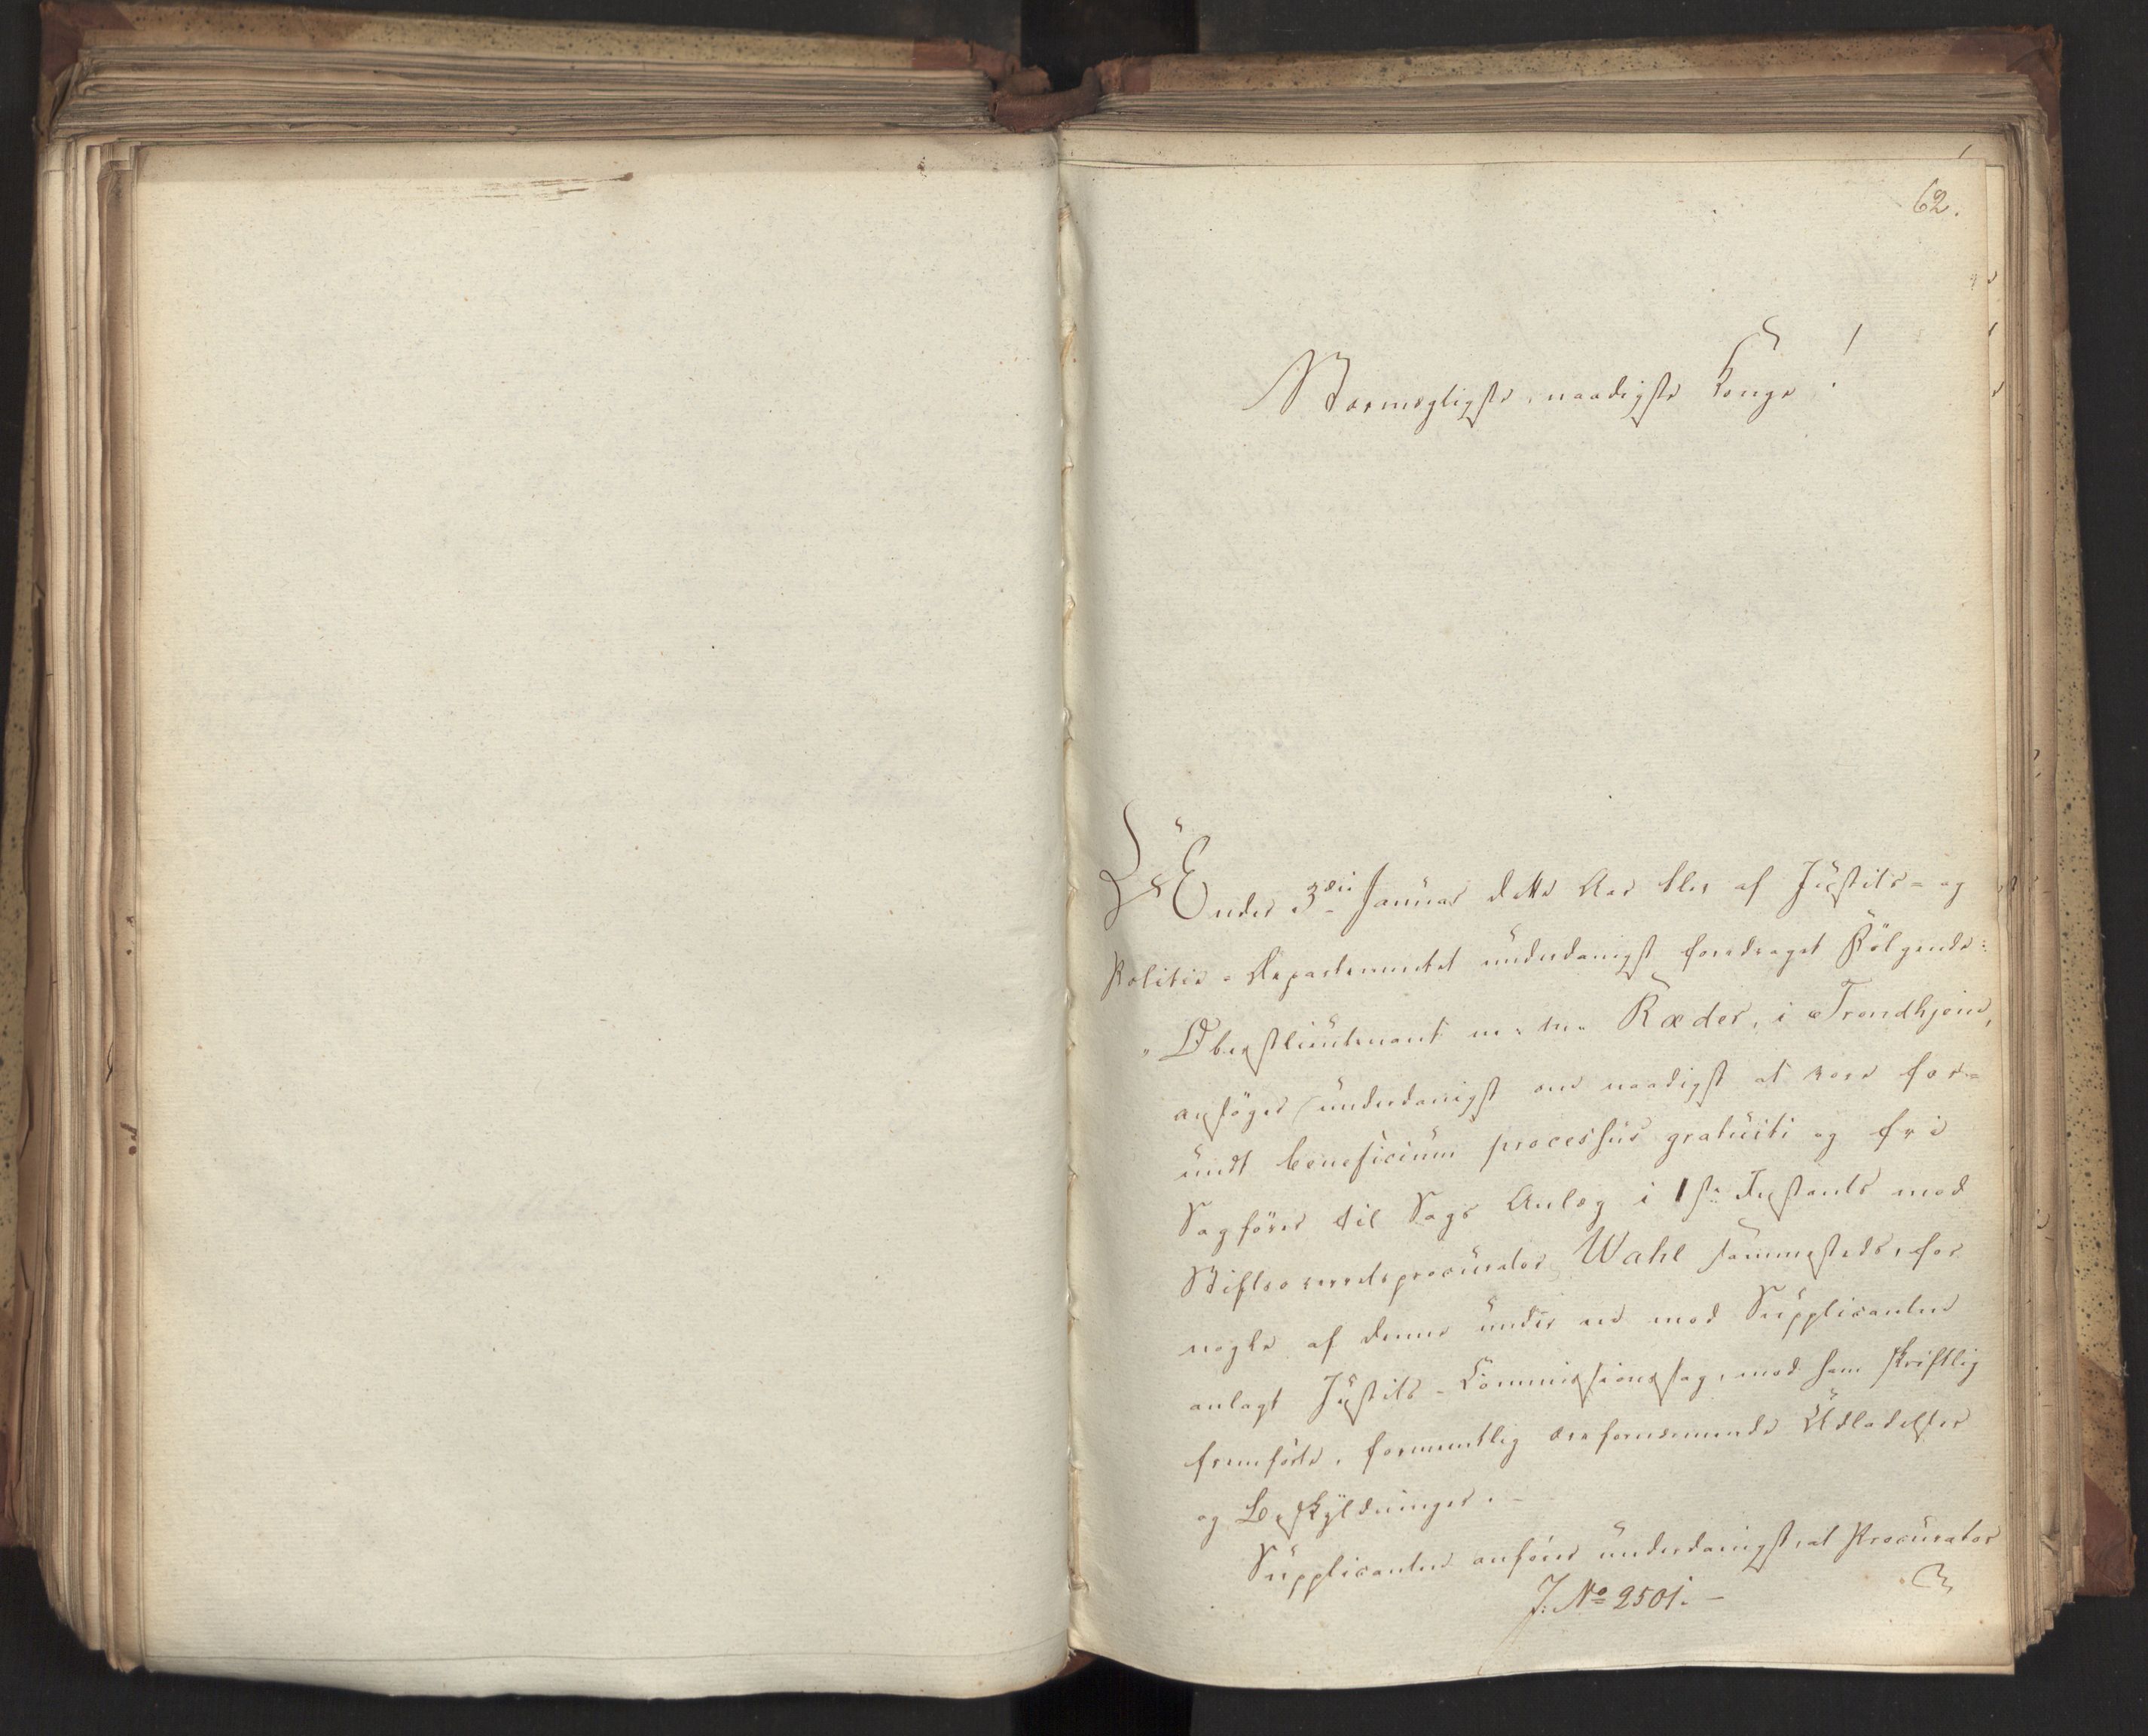 62.
Stormægtigste, naadigste Konge!
Under 3die Januar dette Aar blev af Justits- og
Politie-Departementet underdanigst foredraget Følgende:
"Oberstlieutenant m: m. Ræder, i Trondhjem,
ansøger underdanigst om naadigst at vore for-
undt beneficium processus gratuiti og fri
Sagfører til Sags Anlæg i 1ste Instants mod
Stiftsoverretsprocurator Wahl sammesteds, for
nogle af denne under en mod Supplicanten
anlagt Justits-Commissionssag, mod ham skriftlig
fremførte, formentlig ærefornærmende Udladelser
og Beskyldninger. -
Supplicanten anfører underdanigst, at Procurator
J: No 2501. -